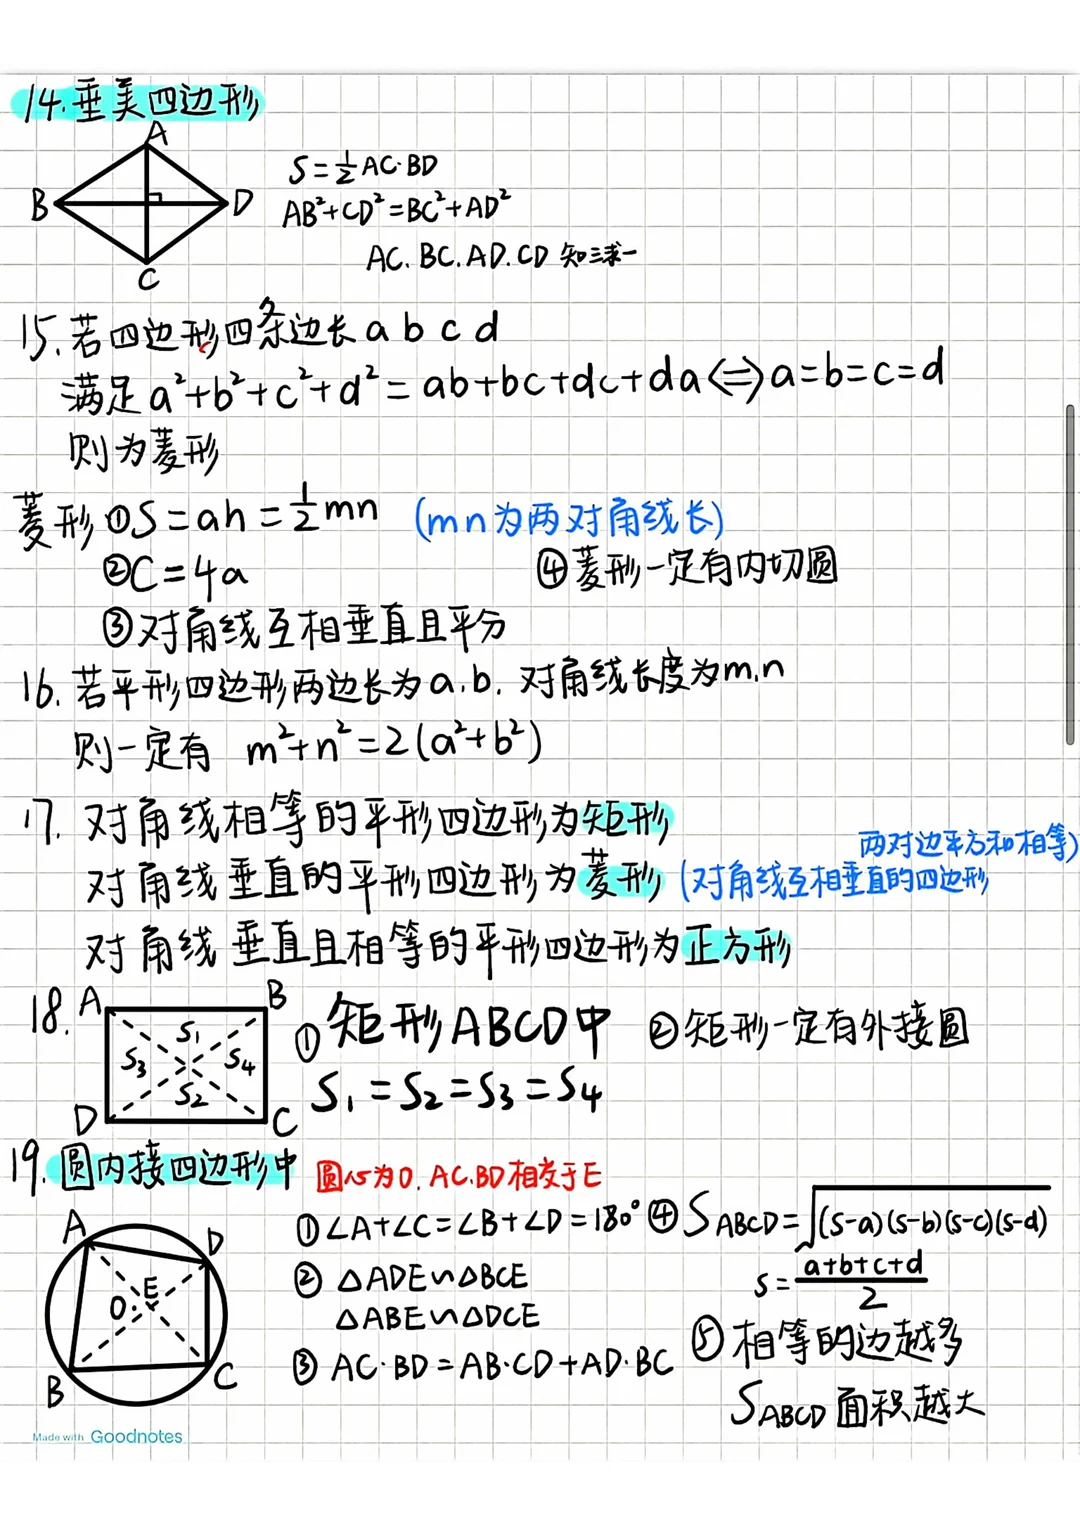 14.垂美四边形
A
B
D
C
S=½AC·BD
AB²+CD²=BC²+AD²
AC.BC.AD.CD 知三求一
15.若四边形四条边长a b c d
满足a²+b²+c²+d²=ab+bc+dc+da⇔a=b=c=d
则为菱形
菱形①S=ah=½mn (mn为两对角线长)
②C=4a
④菱形一定有内切圆
③对角线互相垂直且平分
16.若平形四边形两边长为a.b.对角线长度为m.n
则一定有 m²+n²=2(a²+b²)
17.对角线相等的平形四边形为矩形
两对边平方和相等)
对角线垂直的平形四边形为菱形 (对角线互相垂直的四边形
对角线垂直且相等的平形四边形为正方形
18.
A
B
S₁
S₃
S₄
S₂
D
C
①矩形ABCD中
S₁=S₂=S₃=S₄
②矩形一定有外接圆
19.圆内接四边形中 圆心为O.AC.BD相交于E
A
D
E
O
B
C
①∠A+∠C=∠B+∠D=180°
②△ADE∽△BCE
△ABE∽△DCE
③AC·BD=AB·CD+AD·BC
④S ABCD=√(s-a)(s-b)(s-c)(s-d)
s=(a+b+c+d)/2
⑤相等的边越多
S ABCD面积越大
Made with Goodnotes